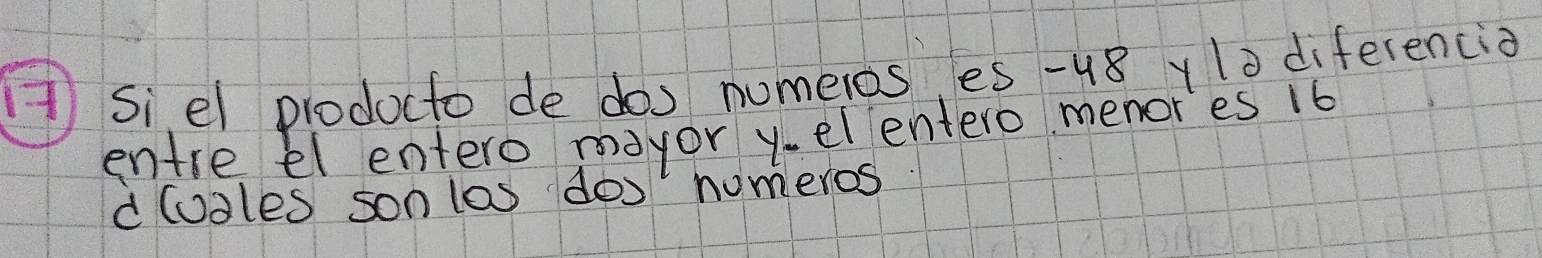 17 Si el producto de dos numeros es -48 y la diferencia
entre el entero mayor y el entero menor es 16
¿Cuales son los dos numeros